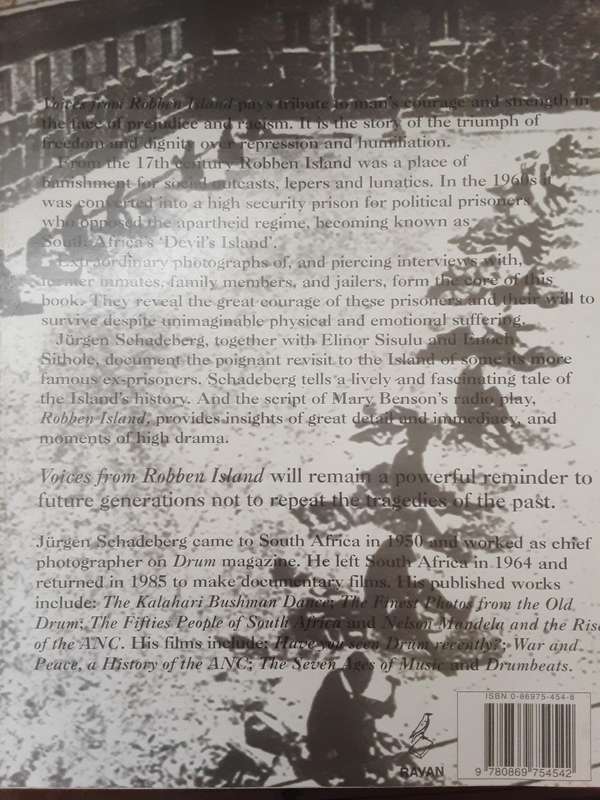 Voices from Robben Island pays tribute to man's courage and strength in
the face of prejudice and racism. It is the story of the triumph of
freedom and dignity over repression and humiliation.
From the 17th century Robben Island was a place of
banishment for social outcasts, lepers and lunatics. In the 1960s it
was converted into a high security prison for political prisoners
who opposed the apartheid regime, becoming known as
South Africa's 'Devil's Island'.
Extraordinary photographs of, and piercing interviews with,
former inmates, family members, and jailers, form the core of this
book. They reveal the great courage of these prisoners and their will to
survive despite unimaginable physical and emotional suffering.
Jürgen Schadeberg, together with Elinor Sisulu and Enoch
Sithole, document the poignant revisit to the Island of some its more
famous ex-prisoners. Schadeberg tells a lively and fascinating tale of
the Island's history. And the script of Mary Benson's radio play,
Robben Island, provides insights of great detail and immediacy, and
moments of high drama.
Voices from Robben Island will remain a powerful reminder to
future generations not to repeat the tragedies of the past.
Jürgen Schadeberg came to South Africa in 1950 and worked as chief
photographer on Drum magazine. He left South Africa in 1964 and
returned in 1985 to make documentary films. His published works
include: The Kalahari Bushman Dance; The Finest Photos from the Old
Drum; The Fifties People of South Africa and Nelson Mandela and the Rise
of the ANC. His films include: Have you seen Drum recently?; War and
Peace, a History of the ANC; The Seven Ages of Music and Drumbeats.
ISBN 0-86975-454-8
RAVAN
9 780869 754542